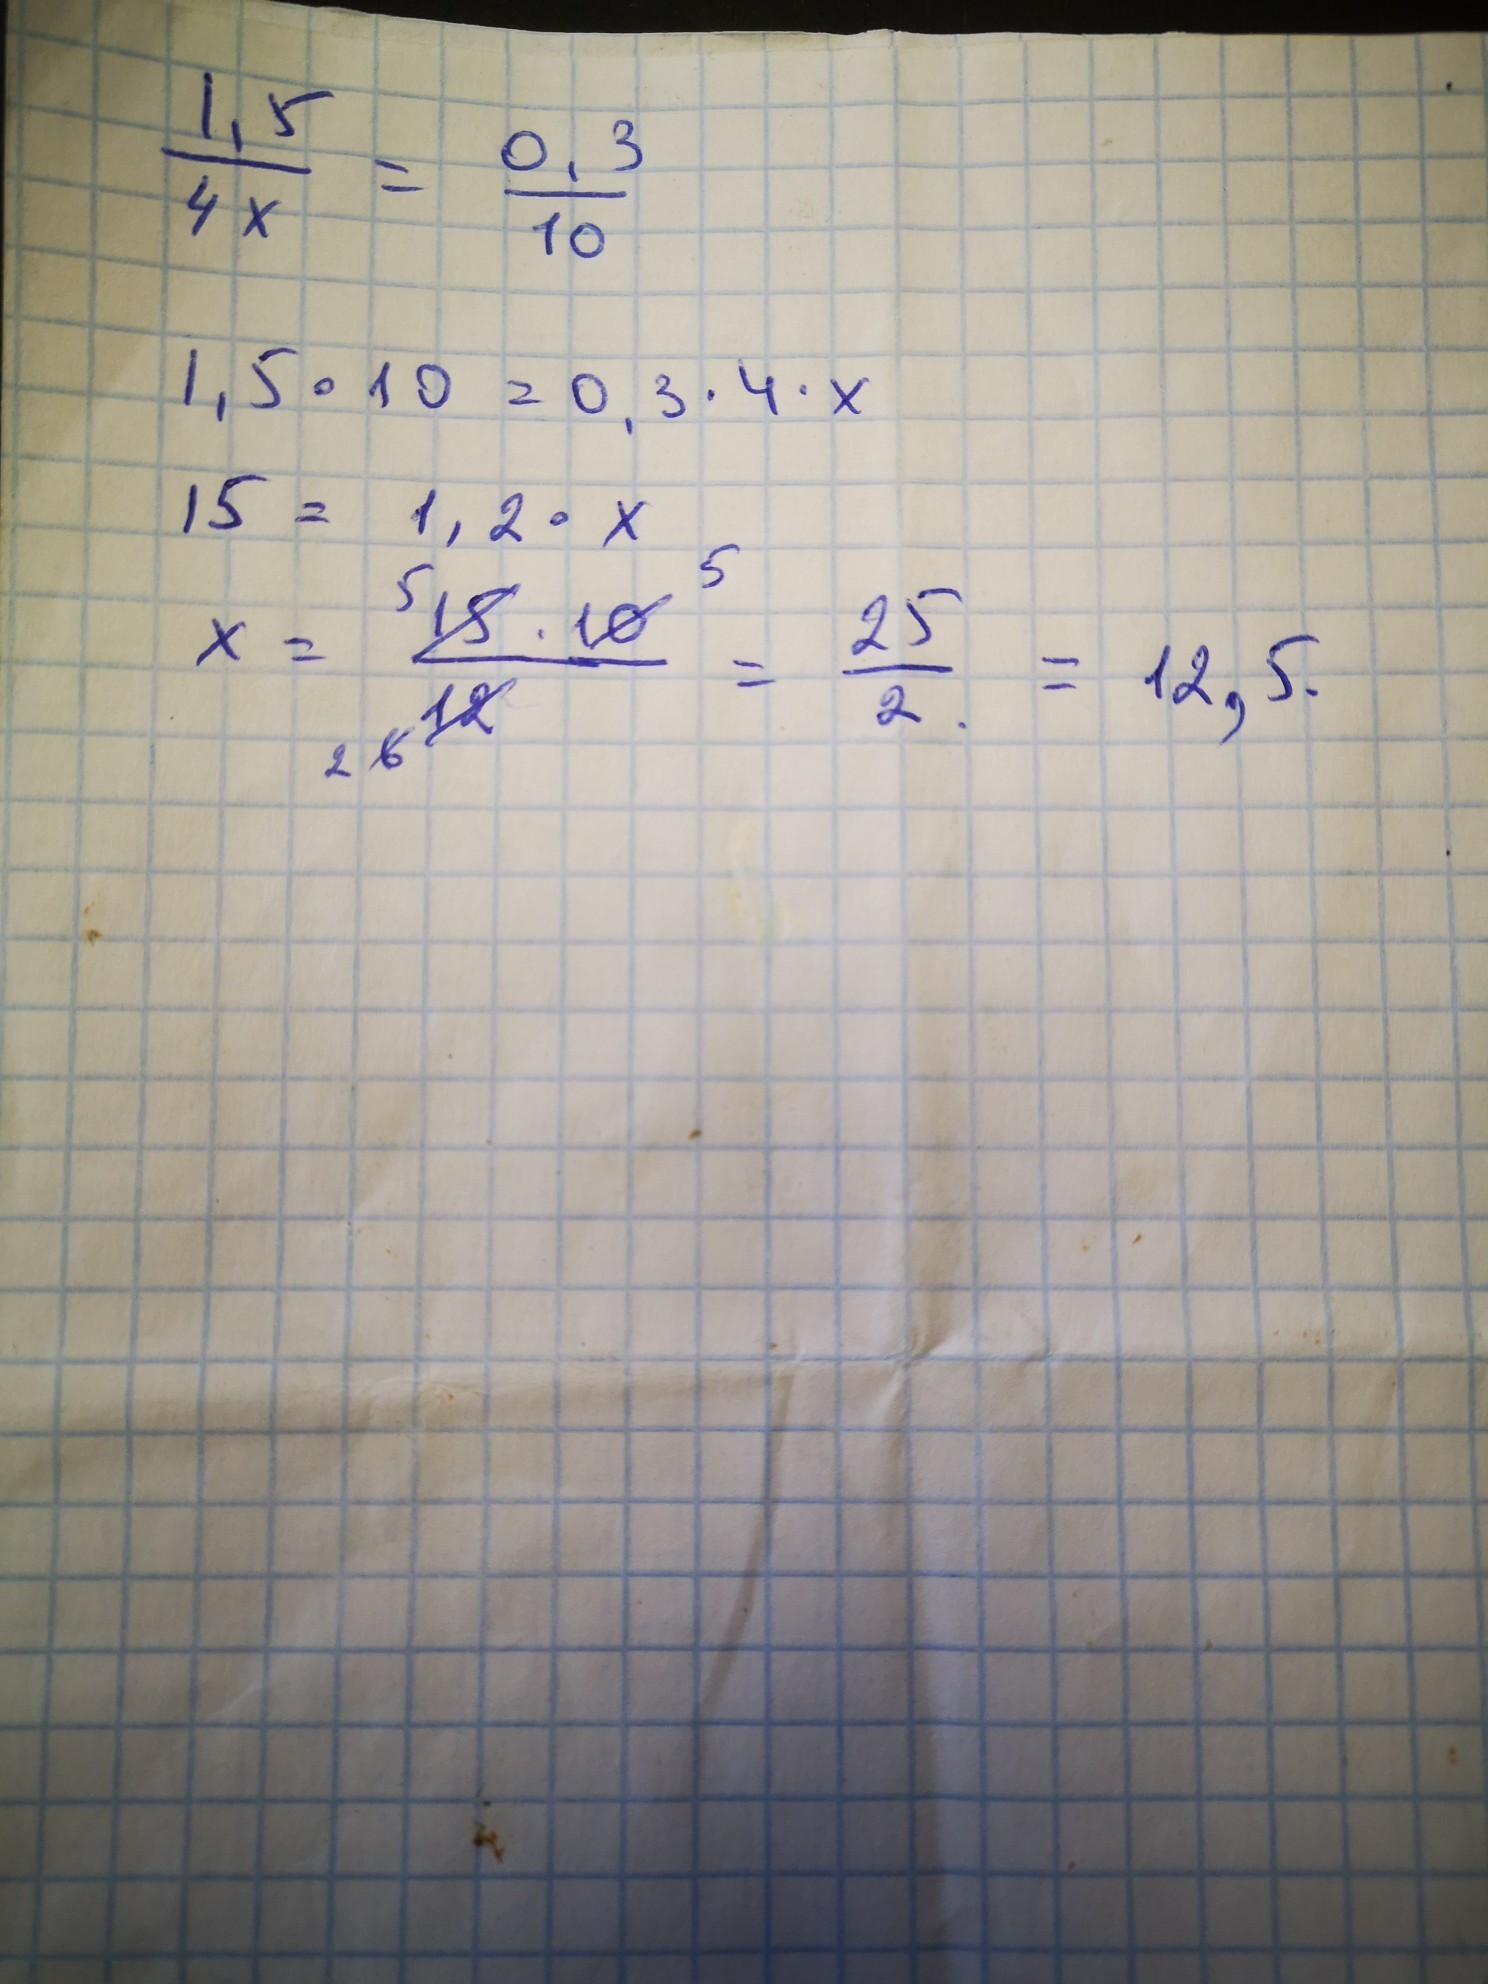 1,5/4x = 0,3/10
1,5 · 10 = 0,3 · 4 · x
15 = 1,2 · x
x = 5 15 · 10 5 / 2 6 12 = 25/2. = 12,5.